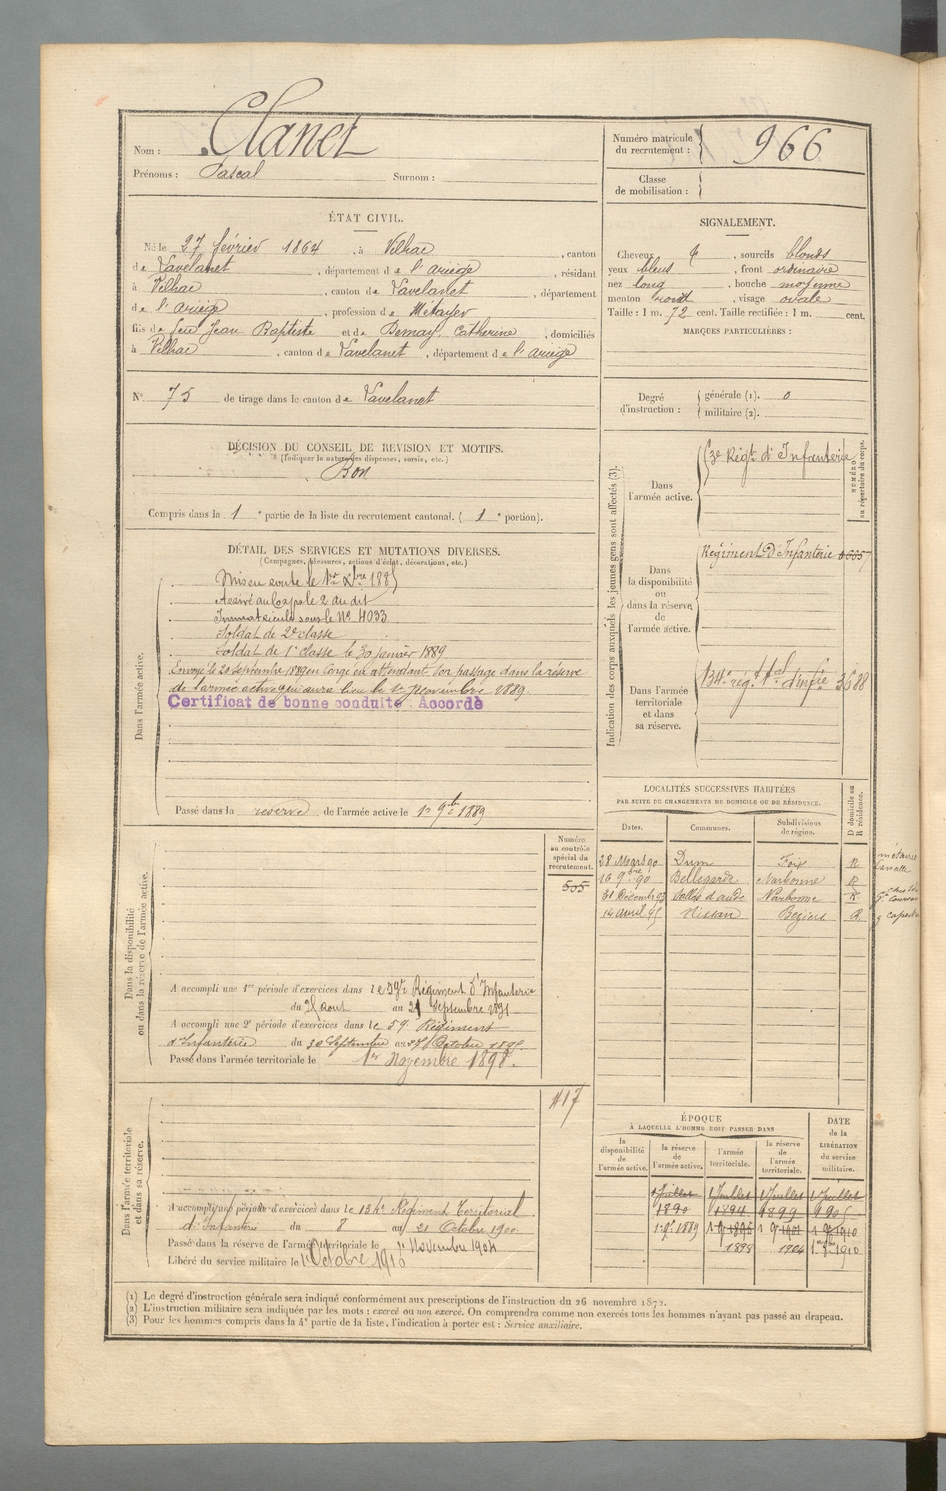 Nom : Clanet
Prénoms : Pascal Surnom :
Numéro matricule du recrutement : 966
Classe de mobilisation :
ÉTAT CIVIL.
Né le 27 février 1864, à Vilhac, canton
de Lavelanet, département de l'ariège, résidant
à Vilhac, canton de Lavelanet, département
de l'ariège, profession de Métayer
fils de feu Jean Baptiste et de Dernay, Catherine, domiciliés
à Vilhac, canton de Lavelanet, département de l'ariège
N° 75 de tirage dans le canton de Lavelanet
DÉCISION DU CONSEIL DE REVISION ET MOTIFS.
(Indiquer la nature des dispenses, sursis, etc.)
Bon
Compris dans la 1e partie de la liste du recrutement cantonal. (1e portion).
DÉTAIL DES SERVICES ET MUTATIONS DIVERSES.
(Campagnes, blessures, actions d'éclat, décorations, etc.)
Dans l'armée active.
Mis en route le 1er Xbre 1885
Arrivé au Corps le 2 au dit
Immatriculé sous le No 4033
Soldat de 2e classe
Soldat de 1e classe le 30 janvier 1889
Envoyé le 20 septembre 1889 en Congé en attendant son passage dans la réserve
de l'armée active qui aura lieu le 1er Novembre 1889.
Certificat de bonne conduite Accordé
Passé dans la reserve de l'armée active le 1er 9bre 1889
Dans la disponibilité ou dans la réserve de l'armée active.
Numéro au contrôle spécial du recrutement.
505
A accompli une 1re période d'exercices dans le 59e Régiment d'Infanterie
du 25 aout au 21 Septembre 1891
A accompli une 2e période d'exercices dans le 59e Régiment
d'Infanterie du 30 Septembre au Octobre 1895.
Passé dans l'armée territoriale le 1er Novembre 1898.
Dans l'armée territoriale et dans sa réserve.
417
A accompli une période d'exercices dans le 134e Régiment Territorial
d'Infanterie du 8 au 21 Octobre 1900
Passé dans la réserve de l'armée territoriale le 1er Novembre 1904
Libéré du service militaire le 1er Octobre 1910
SIGNALEMENT.
Cheveux , sourcils blonds
yeux bleus, front ordinaire
nez long, bouche moyenne
menton rond, visage ovale
Taille : 1 m. 72 cent. Taille rectifiée : 1 m. cent.
MARQUES PARTICULIÈRES :
Degré d'instruction : générale (1). 0
militaire (2).
Indication des corps auxquels les jeunes gens sont affectés (3).
NUMÉRO au répertoire du corps.
Dans l'armée active.
Régt d'Infanterie
Dans la disponibilité ou dans la réserve de l'armée active.
Régiment D'Infanterie
Dans l'armée territoriale et dans sa réserve.
134e régt tal d'infie 3688
LOCALITÉS SUCCESSIVES HABITÉES
PAR SUITE DE CHANGEMENTS DE DOMICILE OU DE RÉSIDENCE.
Dates. Communes. Subdivisions de région. D domicile ou R résidence.
28 Mars 90 Dun Foix R
16 9bre 90 Bellegarde Narbonne R
31 Décembre 93 Salles d'aude Narbonne R
14 avril 95 Nissan Beziers R
ÉPOQUE
À LAQUELLE L'HOMME DOIT PASSER DANS
DATE de la LIBÉRATION du service militaire.
la disponibilité de l'armée active. la réserve de l'armée active. l'armée territoriale. la réserve de l'armée territoriale.
1 Juillet 1 Juillet 1 Juillet 1 Juillet
1890 1894 1899 1905
1 9bre 1889
1898 1904 1910
(1) Le degré d'instruction générale sera indiqué conformément aux prescriptions de l'instruction du 26 novembre 1872.
(2) L'instruction militaire sera indiquée par les mots : exercé ou non exercé. On comprendra comme non exercés tous les hommes n'ayant pas passé au drapeau.
(3) Pour les hommes compris dans la 4e partie de la liste, l'indication à porter est : Service auxiliaire.